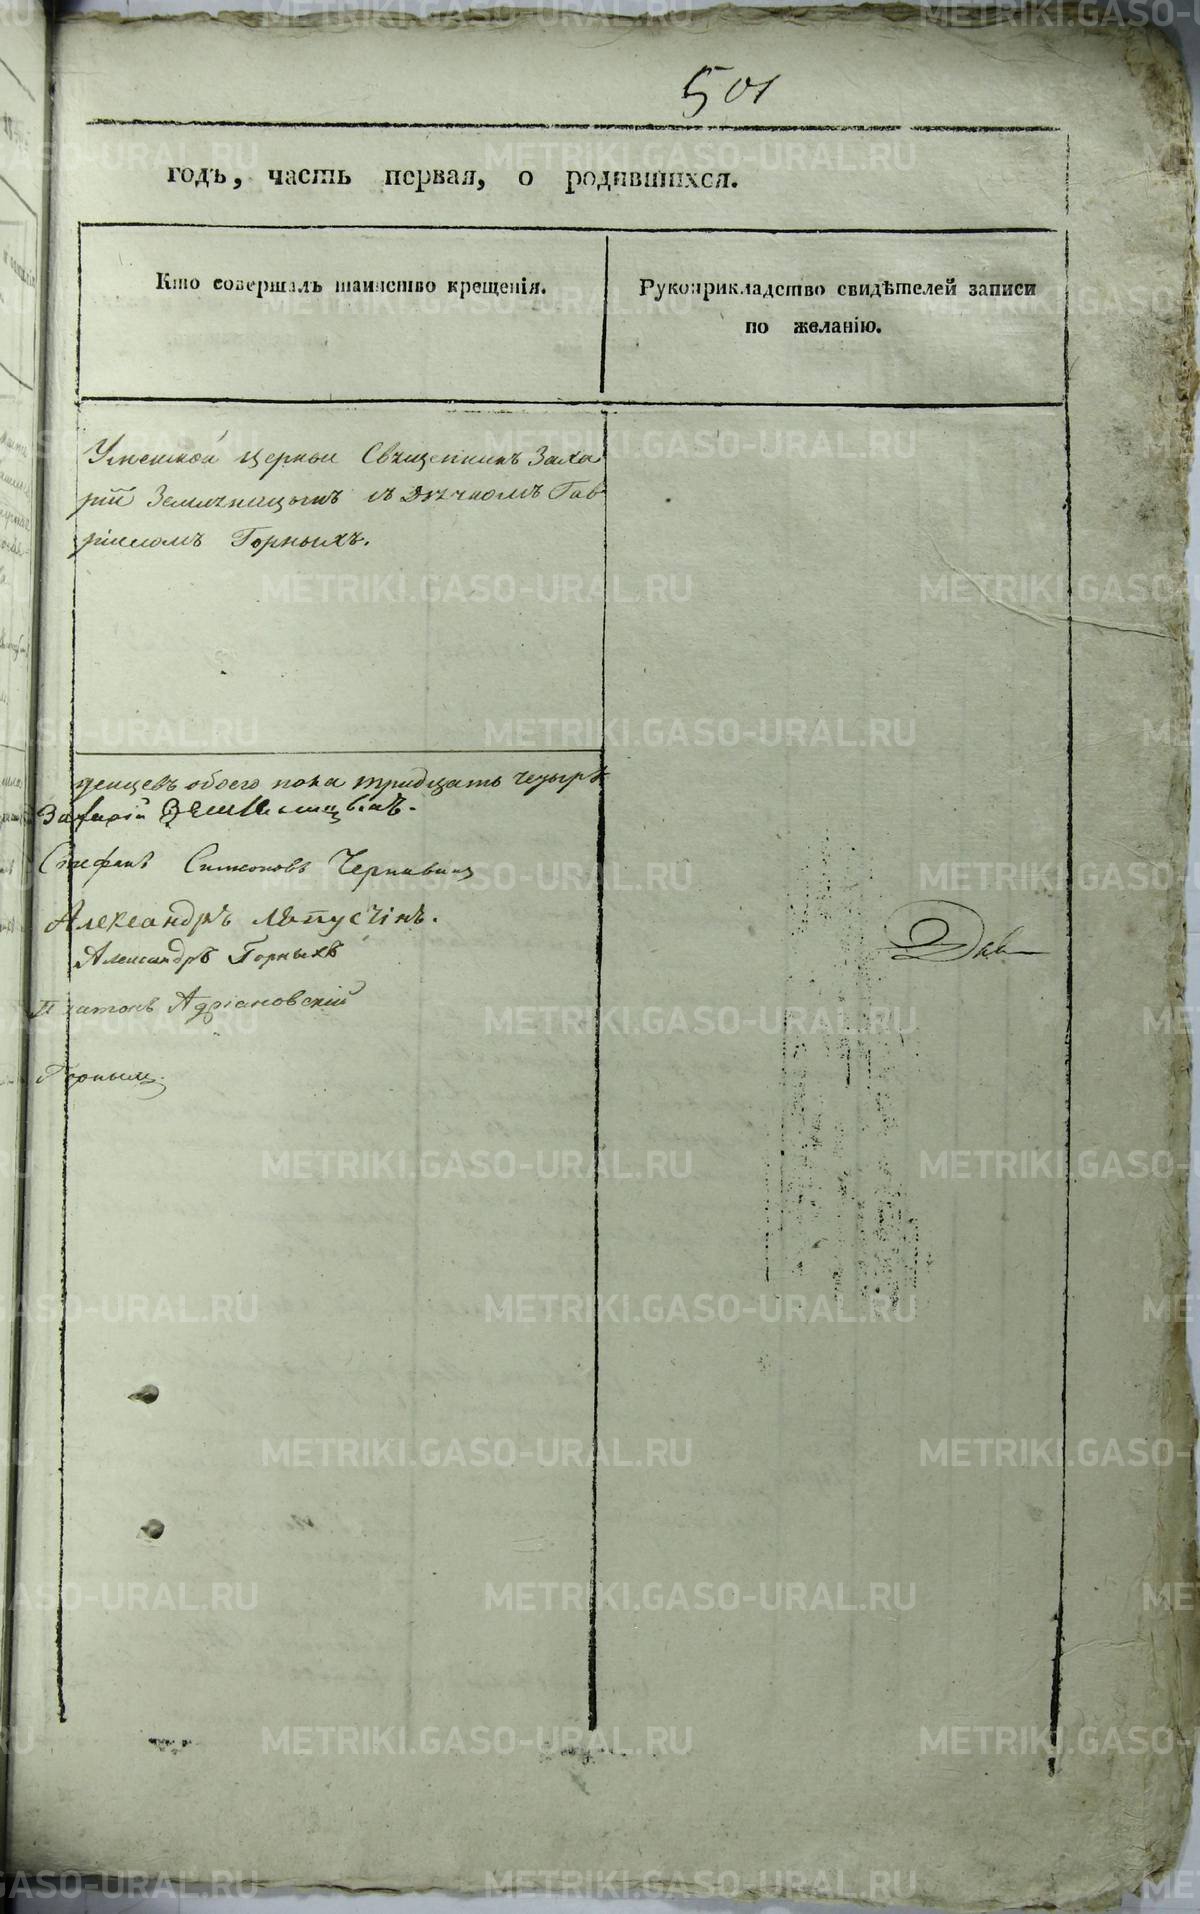 501
годъ, часть первая, о родившихся.
Кто совершалъ таинство крещенія.
Рукоприкладство свидѣтелей записи
по желанію.
церкви Священникъ Заха
рій Земляницынъ съ Дьячкомъ Гав
ріиломъ Горныхъ.
денцевъ обоего пола тридцать четыре
Захарій Земляницынъ.
Стефанъ Симоновъ
Александръ Лепусчінъ.
Александръ Горныхъ
Платонъ Адріановскій
METRIKI.GASO-URAL.RU